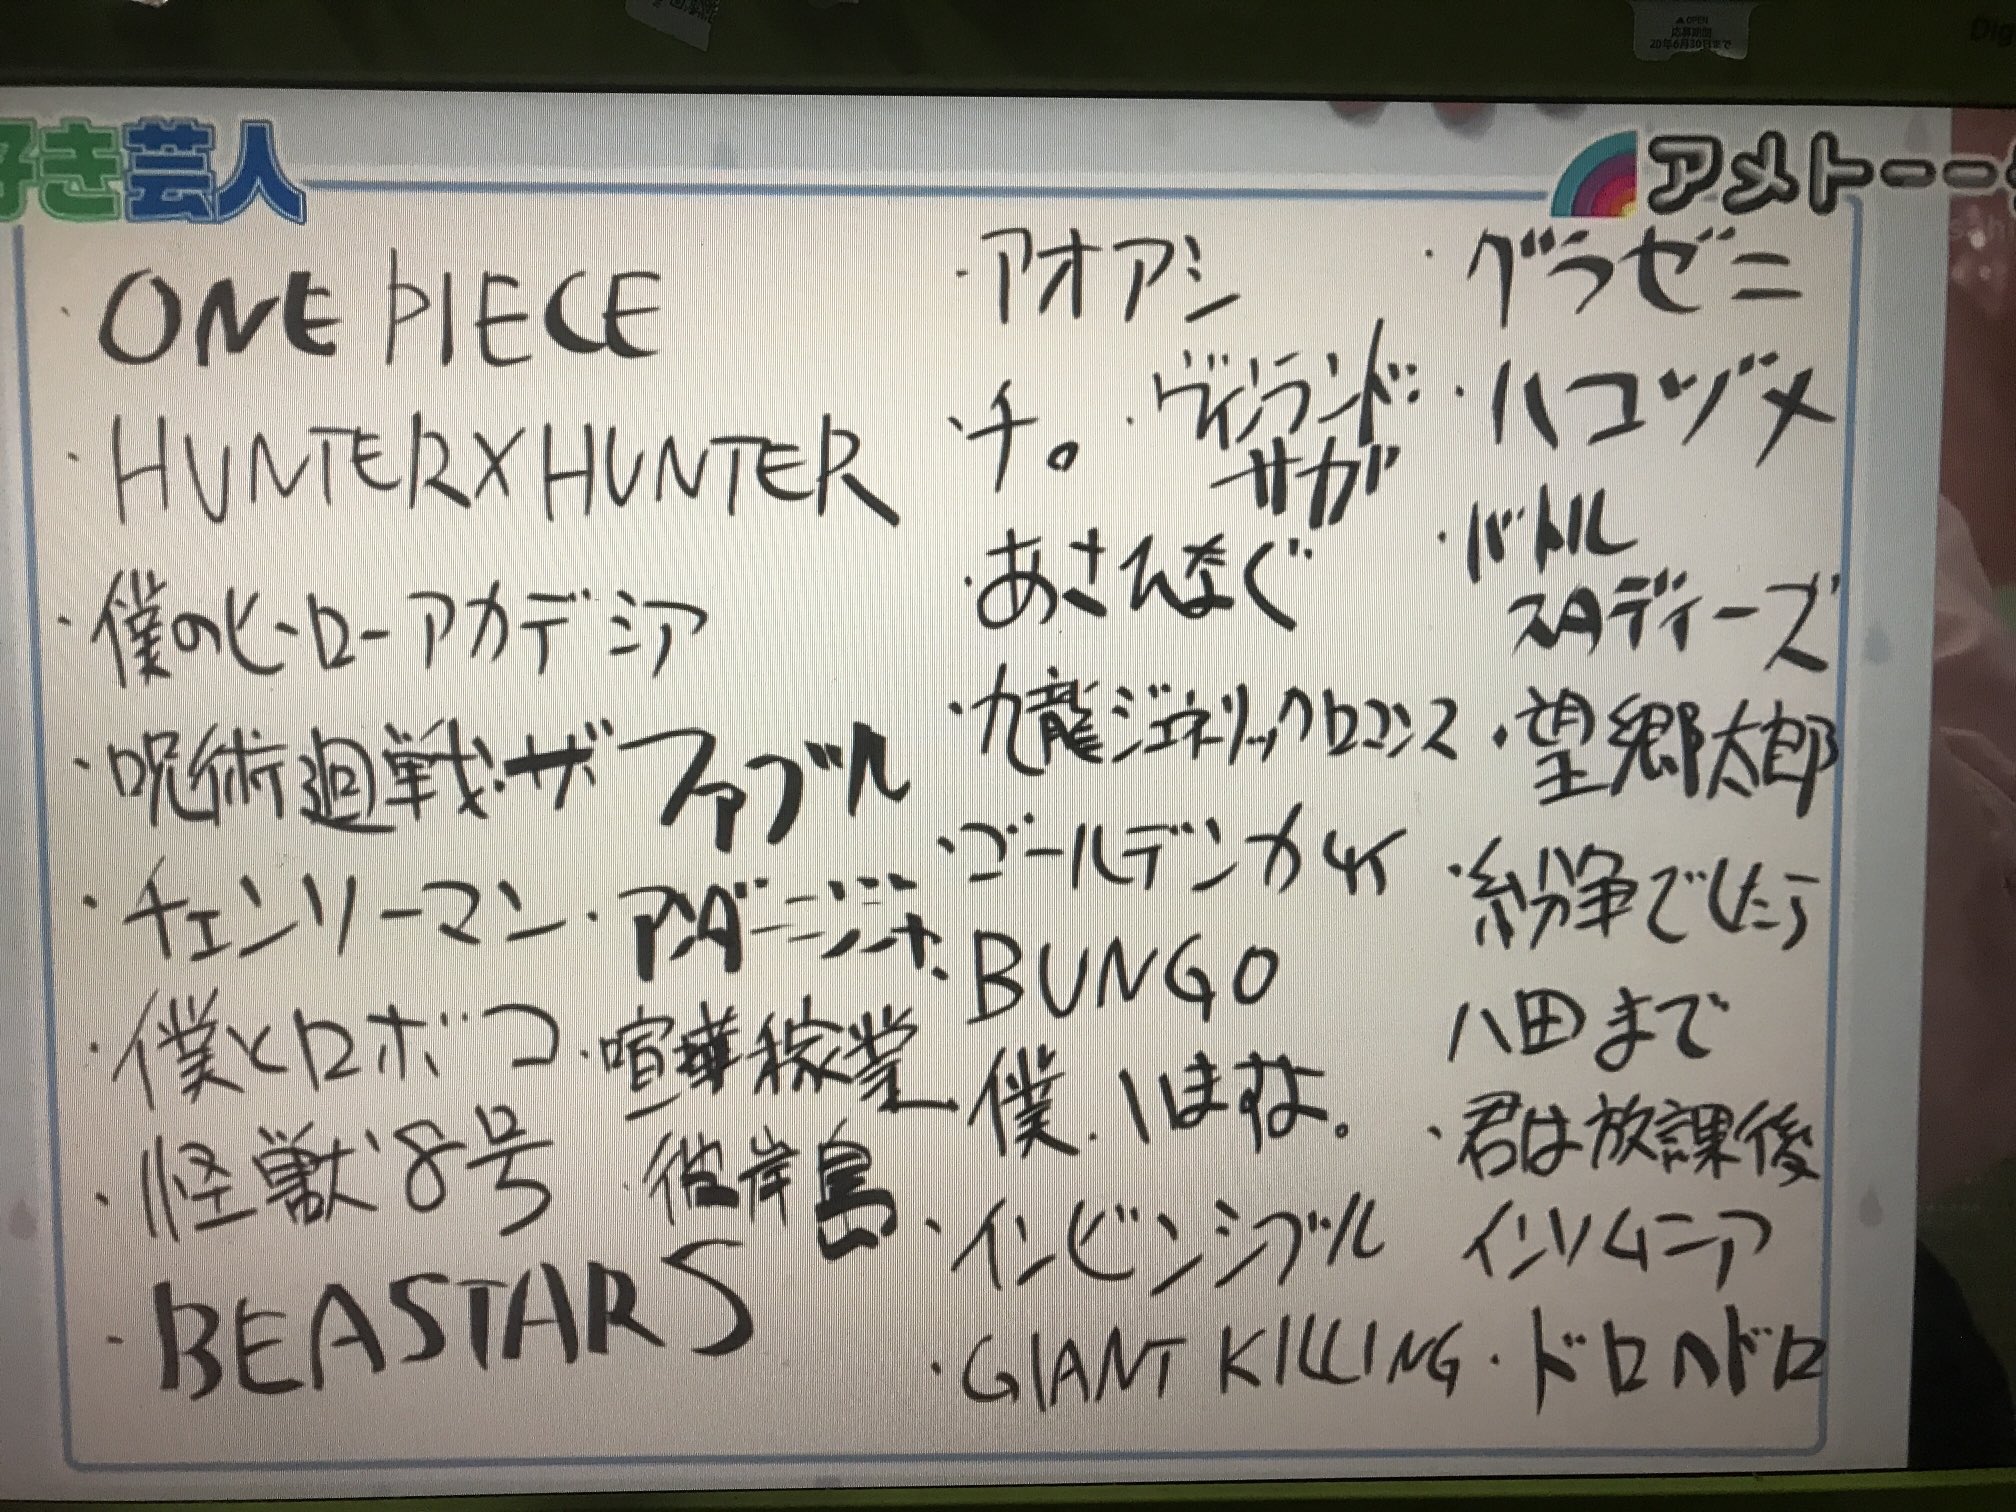 ▲OPEN
応募期間
20年6月30日まで
Dig
好き芸人
アメトーーク
・ONE PIECE
・HUNTER×HUNTER
・僕のヒーローアカデミア
・呪術廻戦・ザ ファブル
・チェンソーマン・アンダーニンジャ
・僕とロボコ・喧嘩稼業
・怪獣8号・彼岸島
・BEASTARS
・アオアシ
・チ。・ヴィンランド
サガ
・あさひなぐ
・九龍ジェネリックロマンス
・ゴールデンカムイ
・BUNGO
僕、はまな。
・インビンシブル
・GIANT KILLING
・グラゼニ
・ハコヅメ
・バトル
スタディーズ
・望郷太郎
・紛争でしたら
八田まで
・君は放課後
インソムニア
・ドロヘドロ